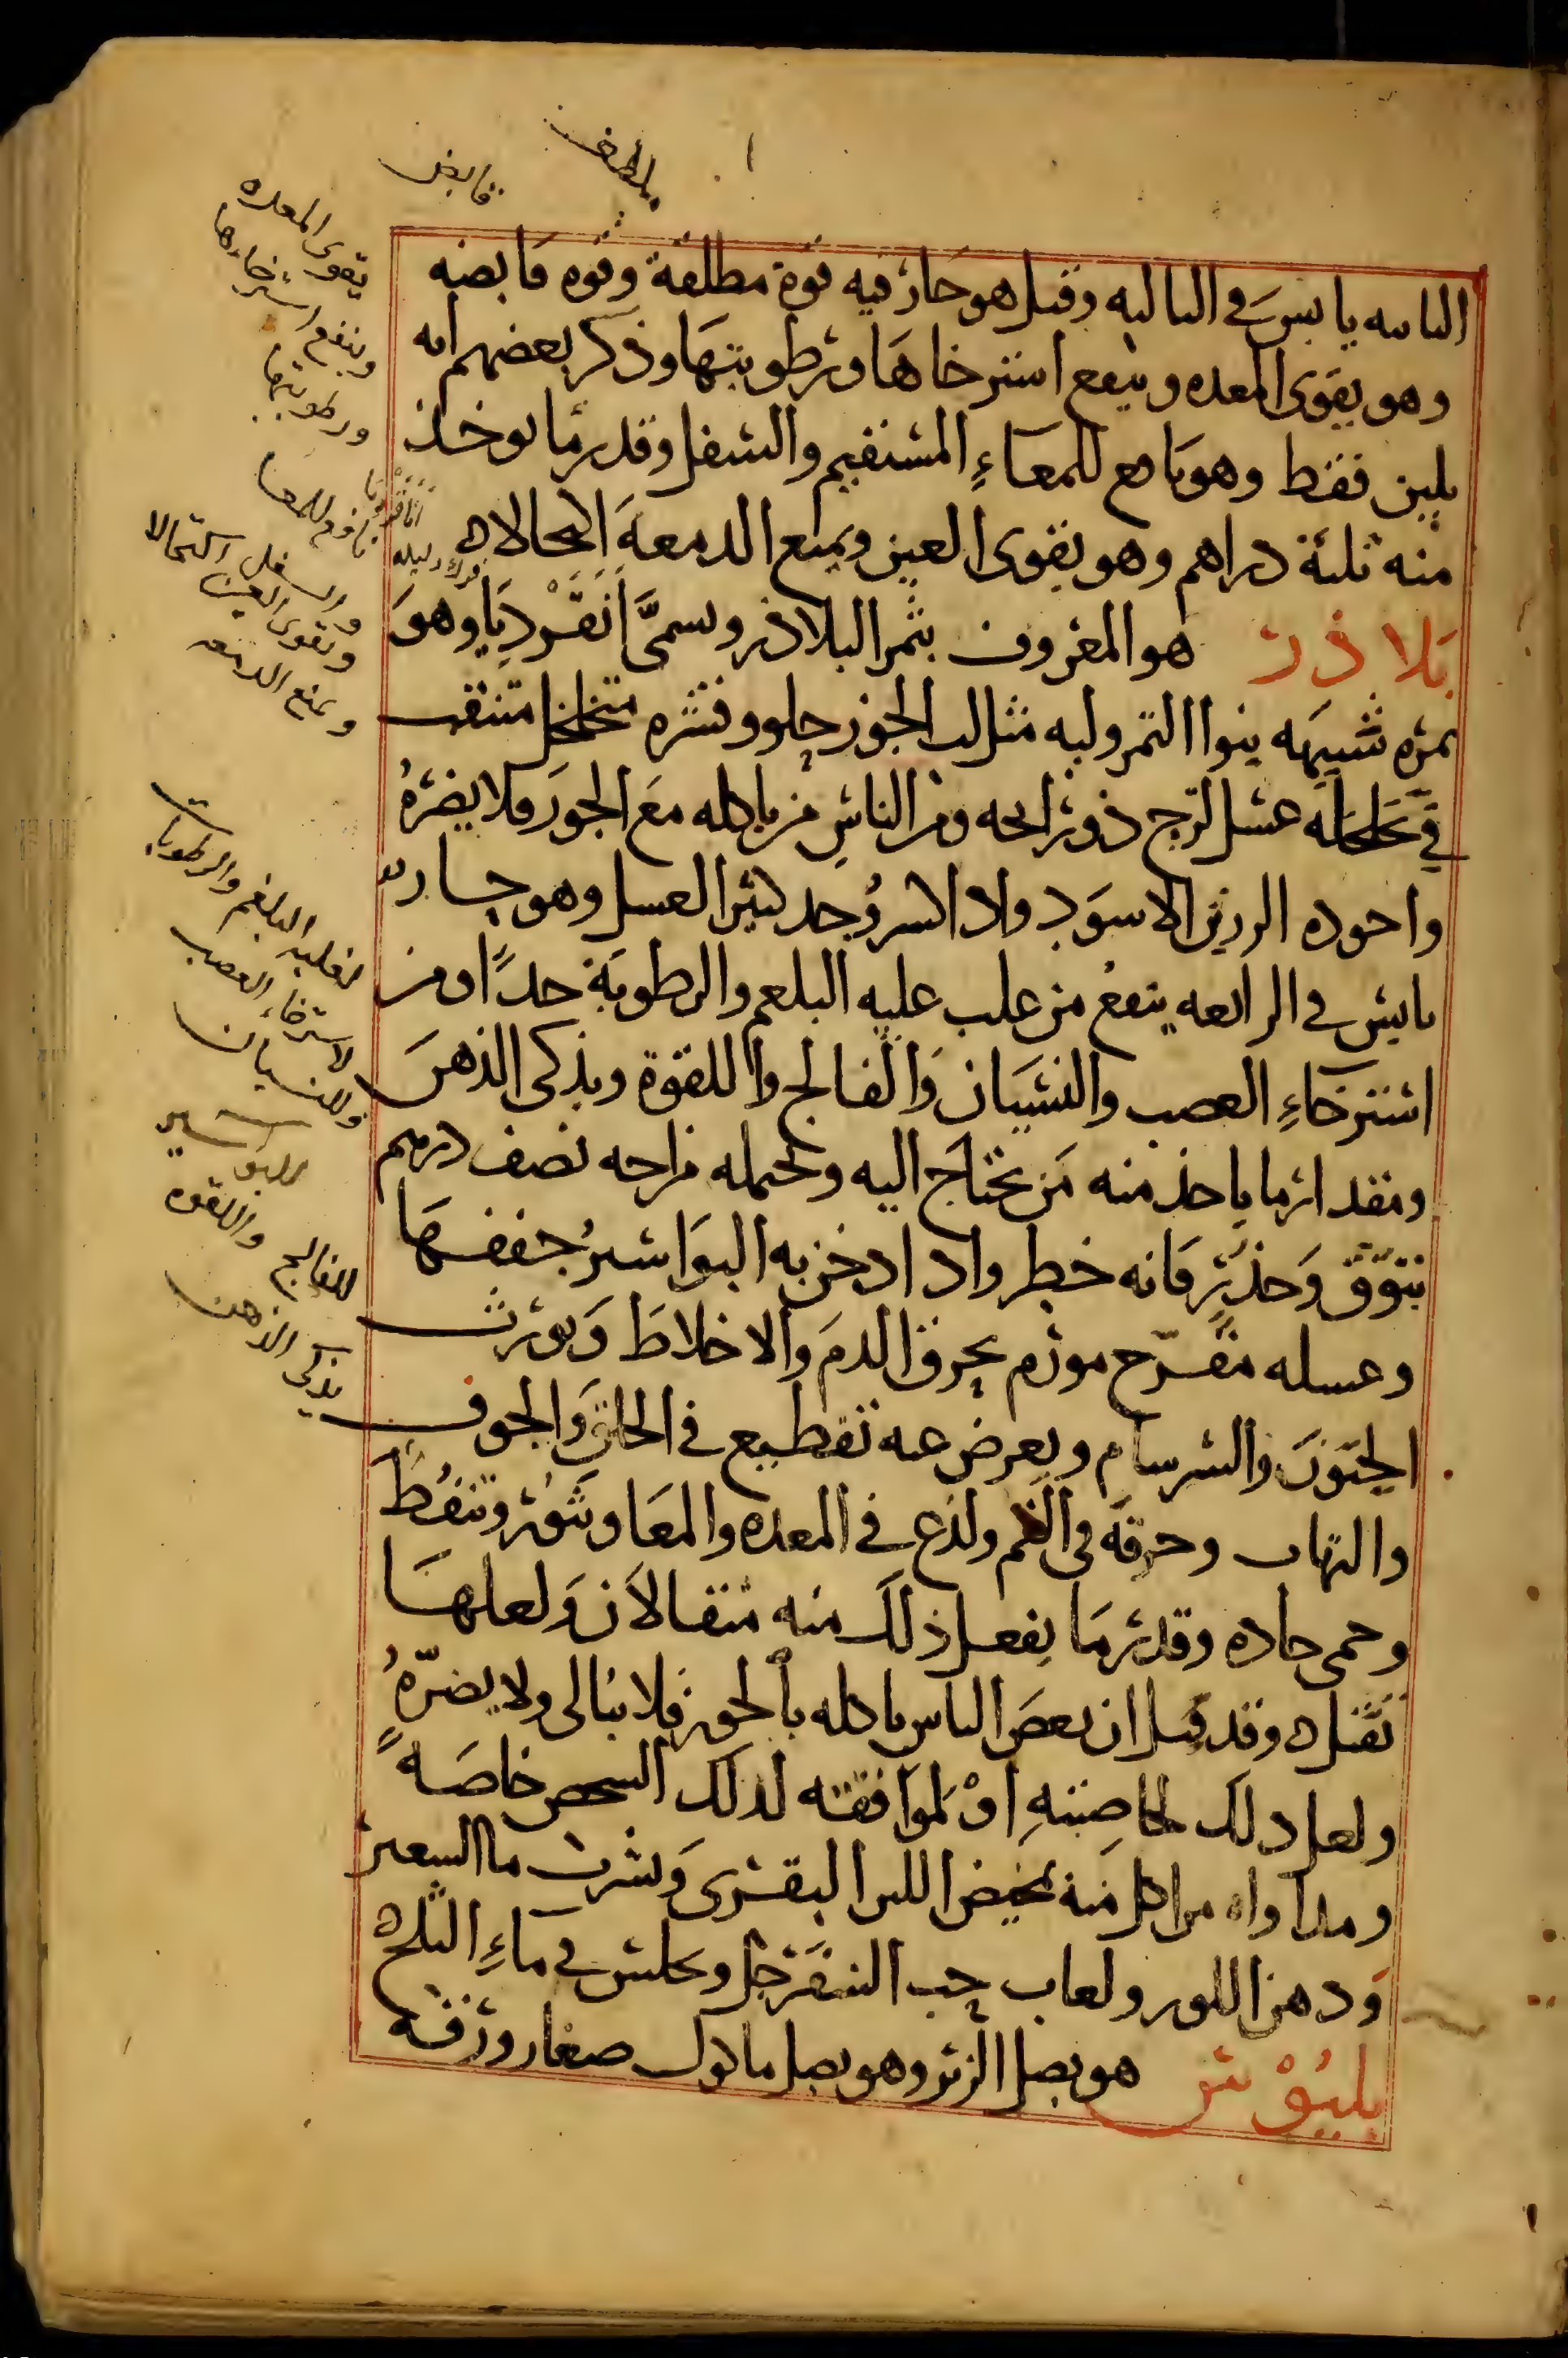 ملطف
قابض
الثانيه يابس في الثالثه وقيل هو حار فيه قوة مطلقة وقوه قابضه
وهو يقوى المعده وينفع استرخاها ورطوبتها وذكر بعضهم انه
يلين فقط وهو نافع للمعاء المستقيم والسفل وقدر ما يوخذ
منه ثلثة دراهم وهو يقوى العين ويمنع الدمعة اكتحالا ه
بلاذر هو المعروف بثمر البلاذر ويسمى انقرديا وهو
ثمره شبيهه بنوا التمر ولبه مثل لب الجوز حلو وقشره متخلخل متثقب
في تخلخله عسل لزج ذو رائحه ومن الناس من ياكله مع الجوز فلا يضره
واجوده الرزين الاسود واذا كسر وجد كثير العسل وهو حار
يابس في الرابعه ينفع من غلب عليه البلغم والرطوبة جدا ومن
استرخاء العصب والنسيان والفالج واللقوة ويذكى الذهن
ومقدار ما ياخذ منه من يحتاج اليه ويحمله مزاجه نصف درهم
بتوق وحذر فانه خطر واذا دخن به البواسير جففها
وعسله مقرح مورم يحرق الدم والاخلاط ويورث
الجنون والسرسام ويعرض عنه تقطيع في الحلق والجوف
والتهاب وحرقه في الفم ولذع في المعده والمعا وبثور وتنفط
وحمى حاده وقدر ما يفعل ذلك منه مثقالان ولعلها
تقتل ه وقد قيل ان بعض الناس ياكله بالجوز فلا يبالى ولا يضره
ولعل ذلك لخاصيته او لموافقته لذلك الشخص خاصة
ومداواه من اكل منه بمخيض اللبن البقرى وبشرب ما الشعير
ودهن اللوز ولعاب حب السفرجل ويجلس في ماء الثلج ه
بلبوس هو بصل الزيز وهو بصل ماكول صغار ورقه
يقوى المعده
وينفع استرخاءها
ورطوبتها
نافع للمعا
والسفل اكتحالا
ويقوى العين
ويمنع الدمعه
لغلبه البلغم والرطوبات
لاسترخاء العصب
وللنسيان
للبواسير
للفالج واللقوه
يذكى الذهن